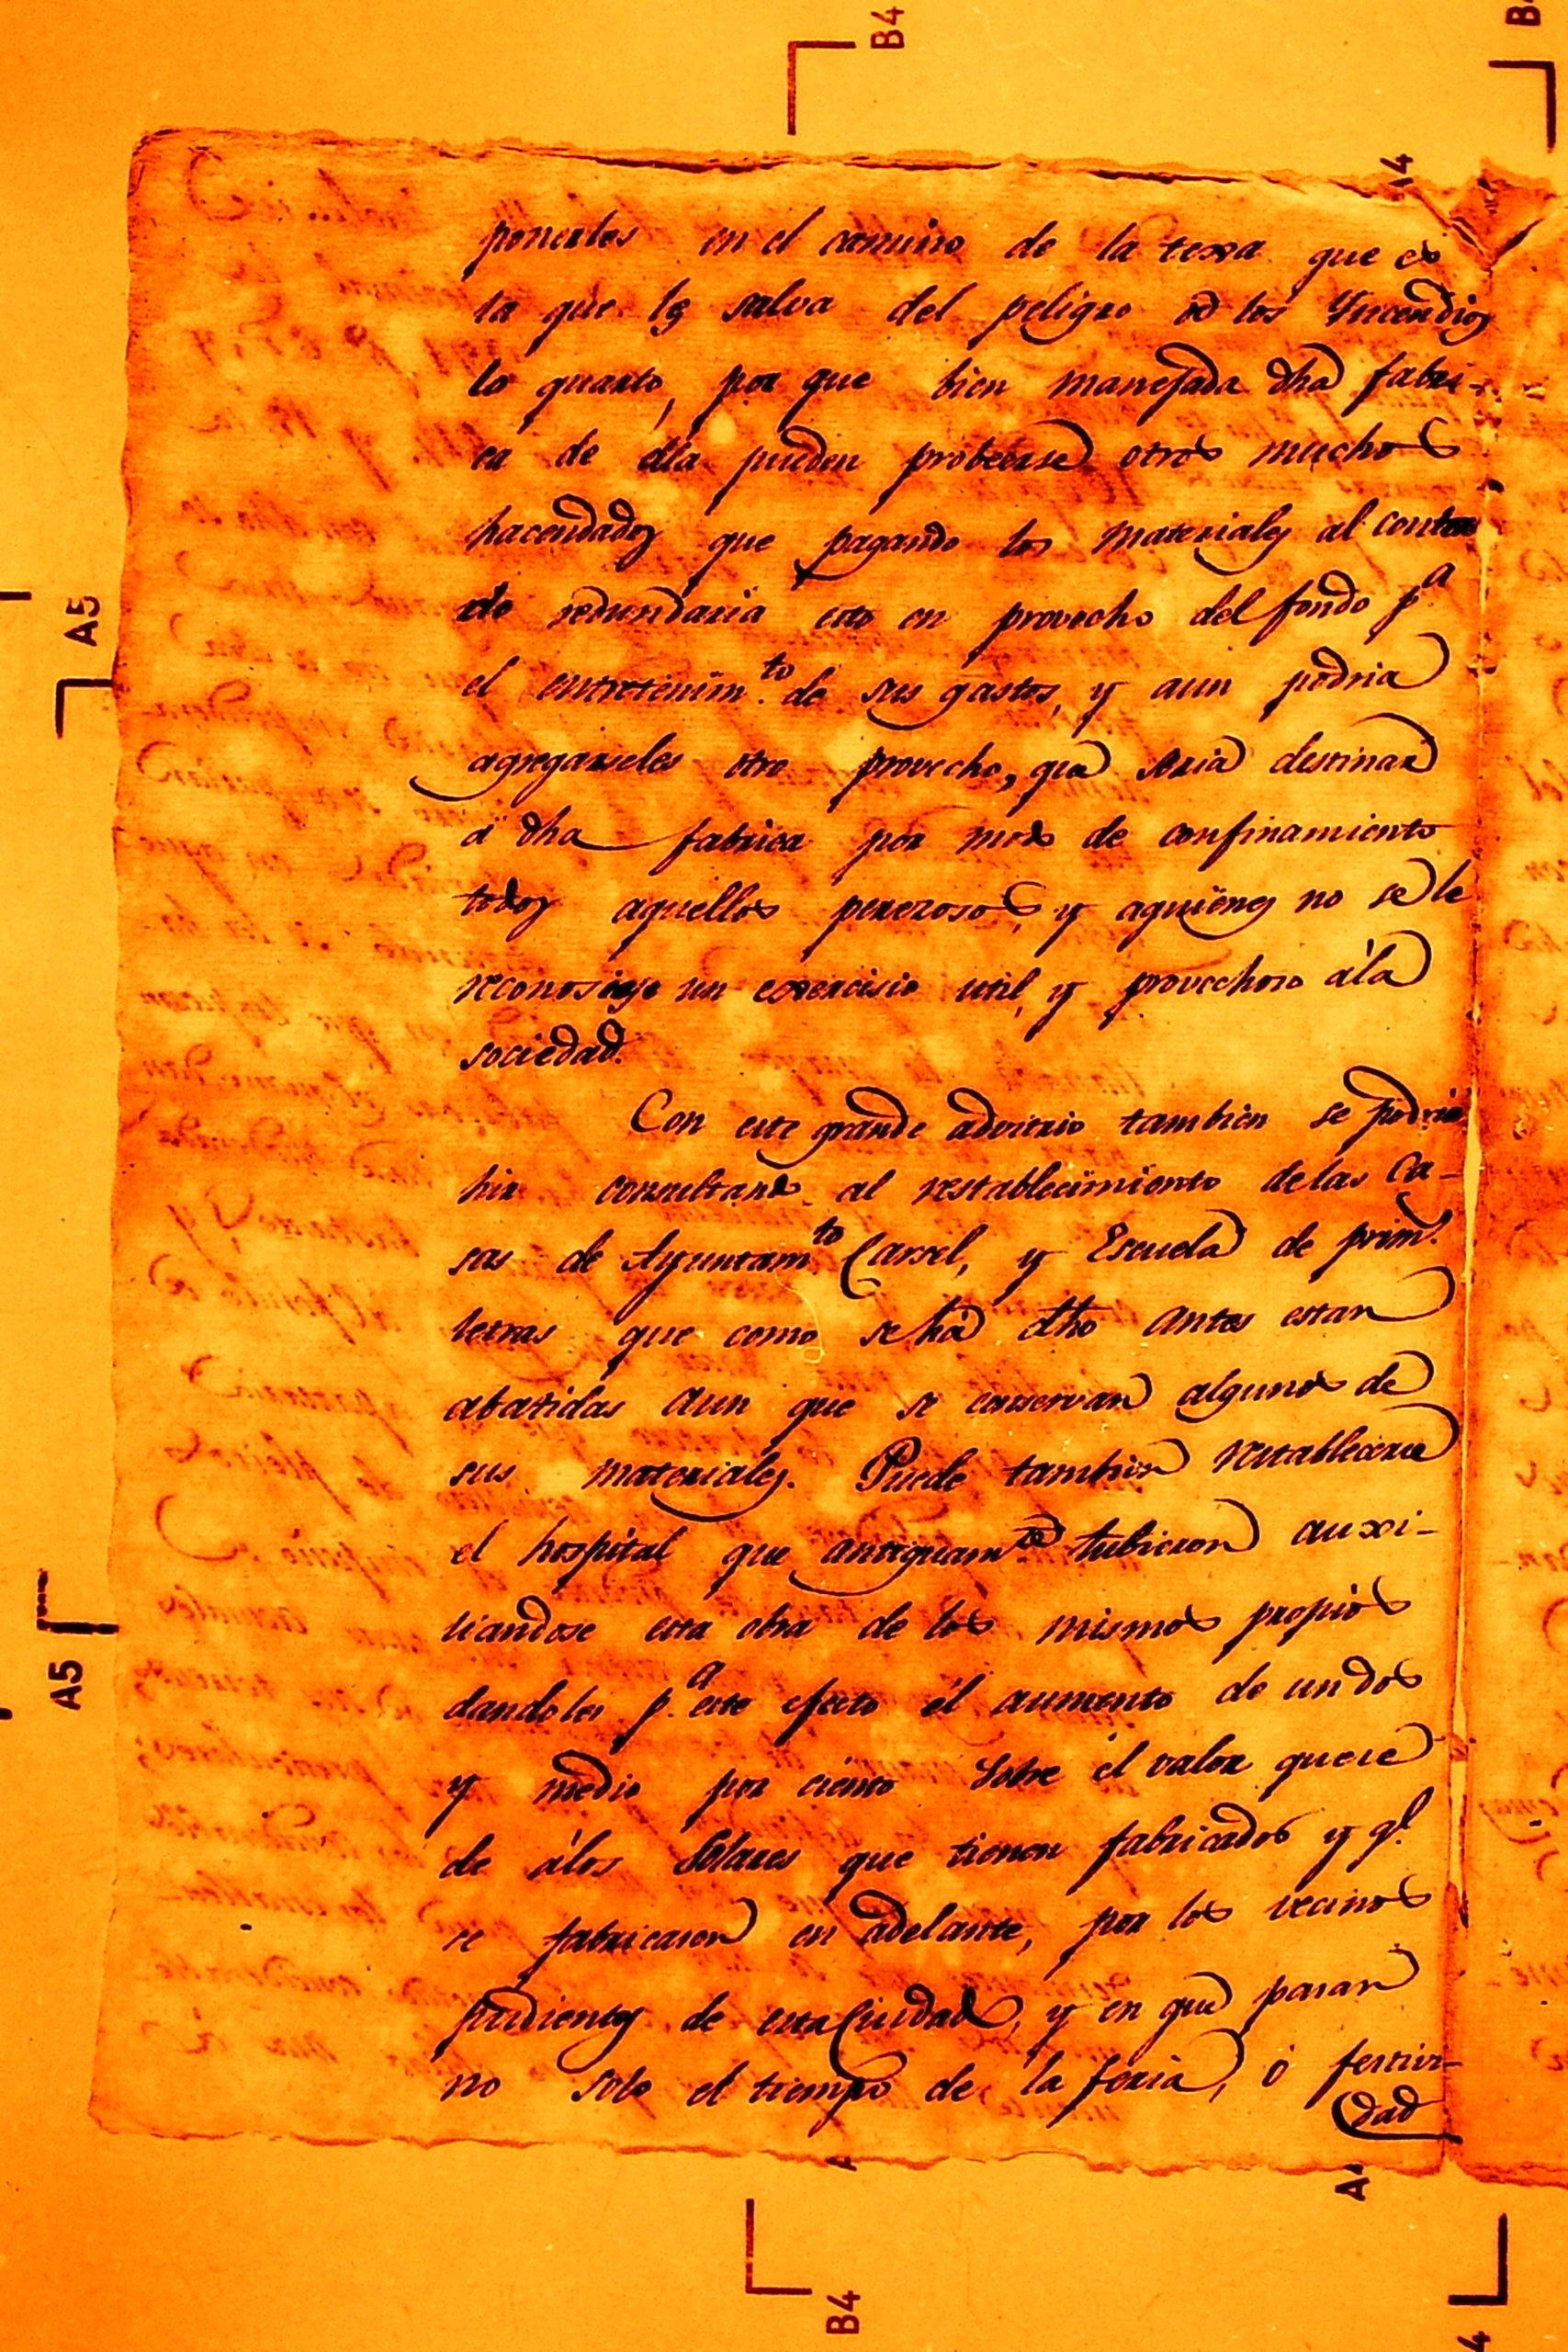 ponerlos en el camino de la texa que es
la que los salva del peligro de los Yncendios
lo quarto, por que bien manejada dha fabri-
ca de ella pueden probeerse otros muchos
hacendados que pagando los materiales al conta
do redundaria esto en provecho del fondo p.a
el entretenim.to de sus gastos, y aun podria
agregarseles otro provecho, que seria destinar
á dha fabrica por modo de confinamiento
todos aquellos perezosos, y aquienes no se le
reconosiese un exercisio util, y provechoso ála
sociedad.
Con este grande advitrio tambien se podria
hir consultando al restablecimiento delas Ca-
sas de Ayuntam.to Carsel, y Escuela de prim.s
letras que como se há dho antes estan
abatidas aun que se conservan algunos de
sus materiales. Puede tambien restablecerse
el hospital que antiguam.te tubieron auxi-
liandose esta obra de los mismos propios
dandoles p.a este efecto él aumento de un dos
y medio por ciento sobre él valor que se
dé álos Solares que tienen fabricados y q.e
se fabricaren en adelante, por los vecinos
pudientes de esta Ciudad, y en que pasan
no solo el tiempo de la feria, ó festivi-
dad
A5
A5
B4
B4
A4